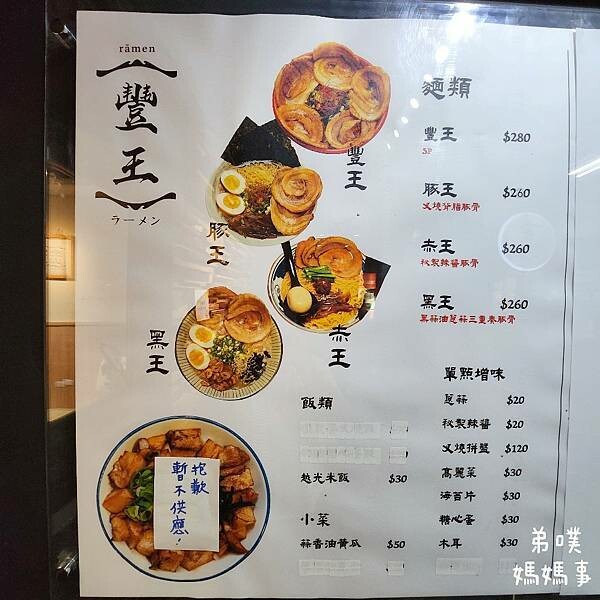 rāmen
豐王
ラーメン
豐王
豚王
赤王
黑王
麵類
豐王 $280
SP
豚王 $260
叉燒背脂豚骨
赤王 $260
秘製辣醬豚骨
黑王 $260
黑蒜油蔥蒜三重奏豚骨
飯類
越光米飯 $30
小菜
蒜香油黃瓜 $50
單點增味
蔥蒜 $20
秘製辣醬 $20
叉燒拼盤 $120
高麗菜 $30
海苔片 $30
糖心蛋 $30
木耳 $30
抱歉
暫不供應!
弟噗
媽媽事